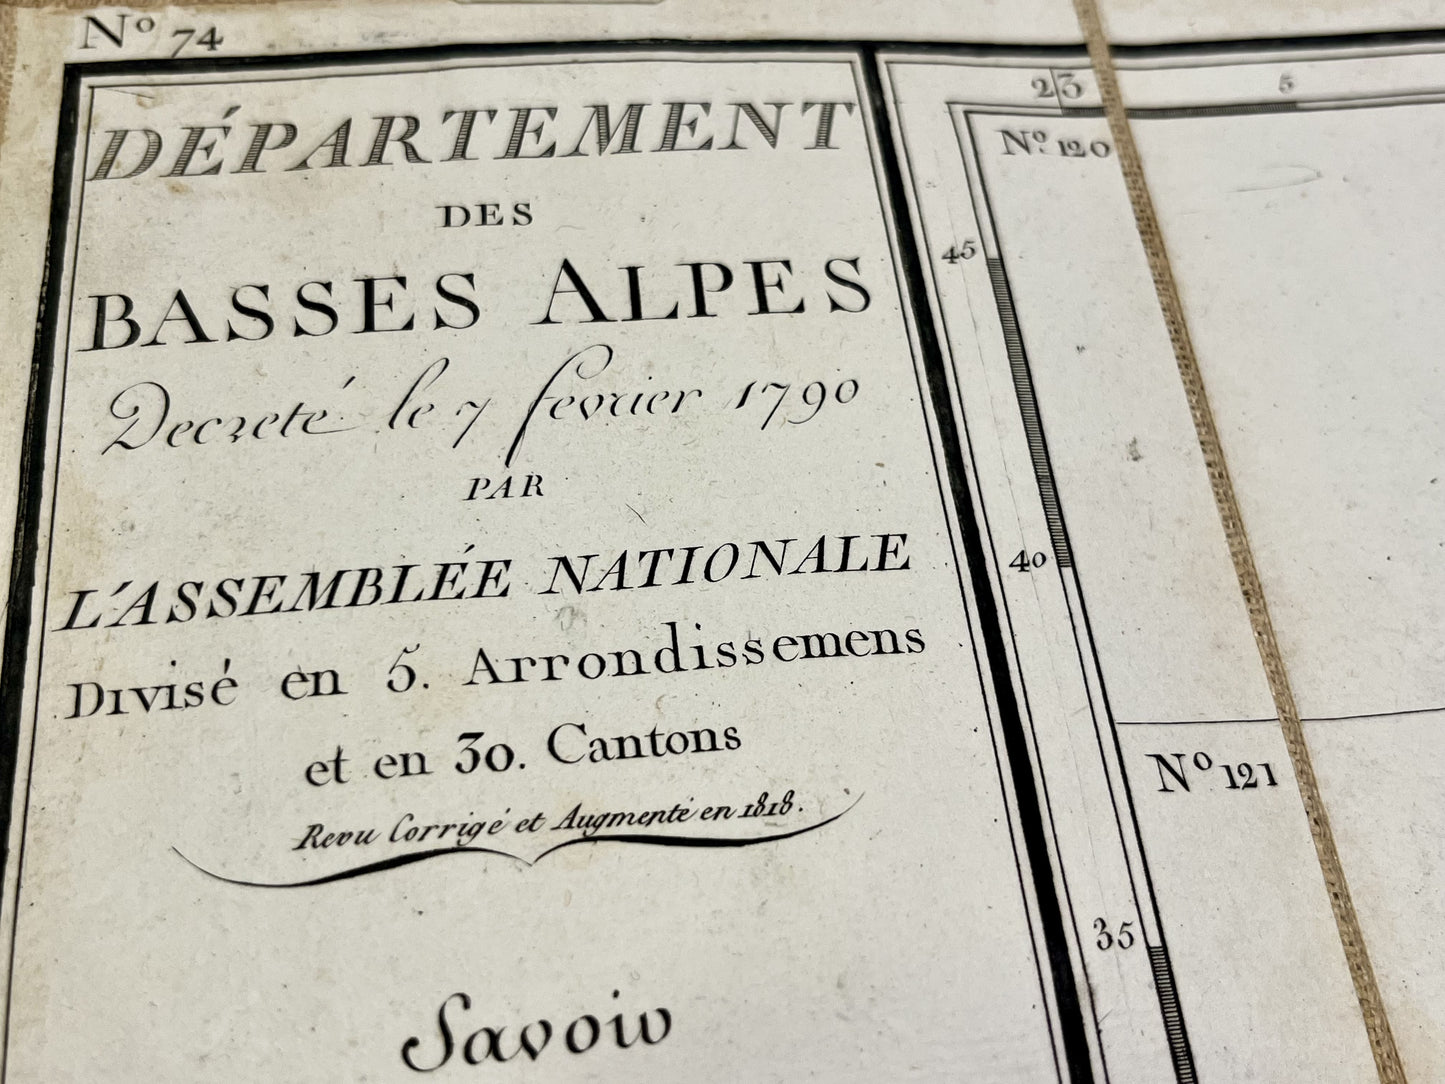 Nº 74
DÉPARTEMENT
DES
BASSES ALPES
Decreté le 7 fevrier 1790
PAR
L'ASSEMBLÉE NATIONALE
Divisé en 5. Arrondissemens
et en 30. Cantons
Revu Corrigé et Augmenté en 1818.
Savoir
23
5
Nº. 120
45
40
Nº 121
35